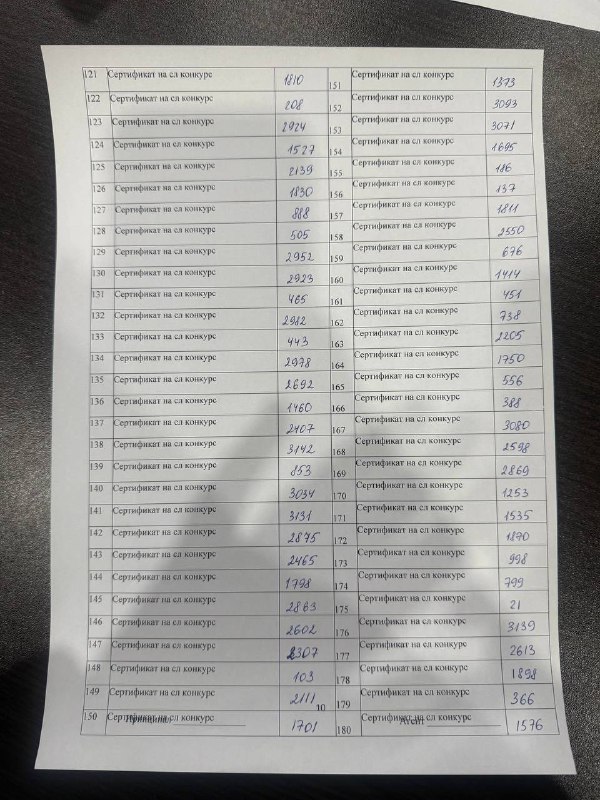 121 Сертификат на сл конкурс 1810 151 Сертификат на сл конкурс 1373
122 Сертификат на сл конкурс 208 152 Сертификат на сл конкурс 3093
123 Сертификат на сл конкурс 2924 153 Сертификат на сл конкурс 3071
124 Сертификат на сл конкурс 1527 154 Сертификат на сл конкурс 1695
125 Сертификат на сл конкурс 2139 155 Сертификат на сл конкурс 186
126 Сертификат на сл конкурс 1830 156 Сертификат на сл конкурс 137
127 Сертификат на сл конкурс 888 157 Сертификат на сл конкурс 1811
128 Сертификат на сл конкурс 505 158 Сертификат на сл конкурс 2550
129 Сертификат на сл конкурс 2952 159 Сертификат на сл конкурс 676
130 Сертификат на сл конкурс 2923 160 Сертификат на сл конкурс 1414
131 Сертификат на сл конкурс 465 161 Сертификат на сл конкурс 451
132 Сертификат на сл конкурс 2912 162 Сертификат на сл конкурс 738
133 Сертификат на сл конкурс 443 163 Сертификат на сл конкурс 2205
134 Сертификат на сл конкурс 2978 164 Сертификат на сл конкурс 1750
135 Сертификат на сл конкурс 2692 165 Сертификат на сл конкурс 556
136 Сертификат на сл конкурс 1460 166 Сертификат на сл конкурс 388
137 Сертификат на сл конкурс 2407 167 Сертификат на сл конкурс 3080
138 Сертификат на сл конкурс 3142 168 Сертификат на сл конкурс 2598
139 Сертификат на сл конкурс 853 169 Сертификат на сл конкурс 2869
140 Сертификат на сл конкурс 3034 170 Сертификат на сл конкурс 1253
141 Сертификат на сл конкурс 3131 171 Сертификат на сл конкурс 1535
142 Сертификат на сл конкурс 2875 172 Сертификат на сл конкурс 1870
143 Сертификат на сл конкурс 2465 173 Сертификат на сл конкурс 998
144 Сертификат на сл конкурс 1798 174 Сертификат на сл конкурс 799
145 Сертификат на сл конкурс 2863 175 Сертификат на сл конкурс 21
146 Сертификат на сл конкурс 2602 176 Сертификат на сл конкурс 3139
147 Сертификат на сл конкурс 2307 177 Сертификат на сл конкурс 2613
148 Сертификат на сл конкурс 103 178 Сертификат на сл конкурс 1898
149 Сертификат на сл конкурс 2111 179 Сертификат на сл конкурс 366
10
150 Сертификат на сл конкурс 1701 180 Сертификат на сл конкурс 1576
Принципал Агент